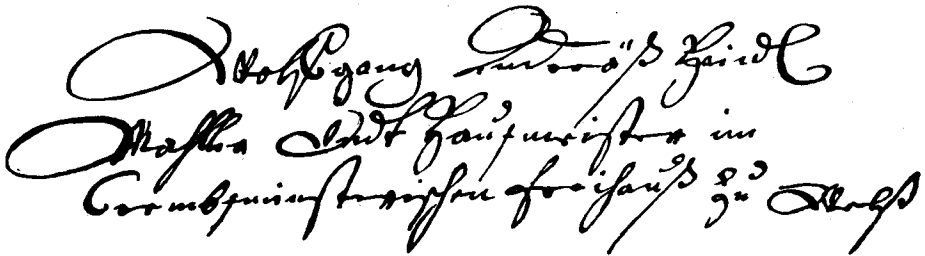 Wolfgang Andreäß Heindl
Mahller Vndt Haußmeister im
Crembsminsterischen Freihauß zu Welß